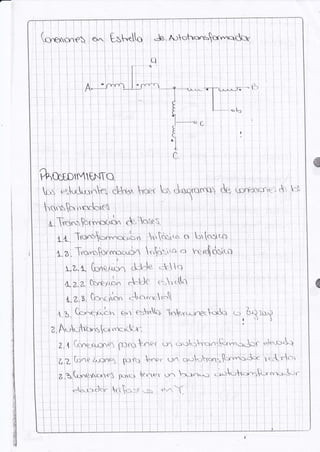 Conexiones en Estrella de Autotransformador
a
A
B
b
c
C
PROCEDIMIENTO
Los estudiantes deben traer los diagramas de conexiones de los
transformadores
1. Transformación de fases
1.1. Transformación trifásica a bifásica
1.2. Transformación trifásica a hexafásica
1.2.1. Conexión doble delta
1.2.2. Conexión doble estrella
1.2.3. Conexión diametral
1.3. Conexión en estrella Interconectada o Zigzag
2. Autotransformador:
2.1 Conexiones para tener un autotransformador elevador
2.2 Conexiones para tener un autotransformador reductor
2.3. Conexiones para tener un banco autotransformador
elevador trifásico en Y.